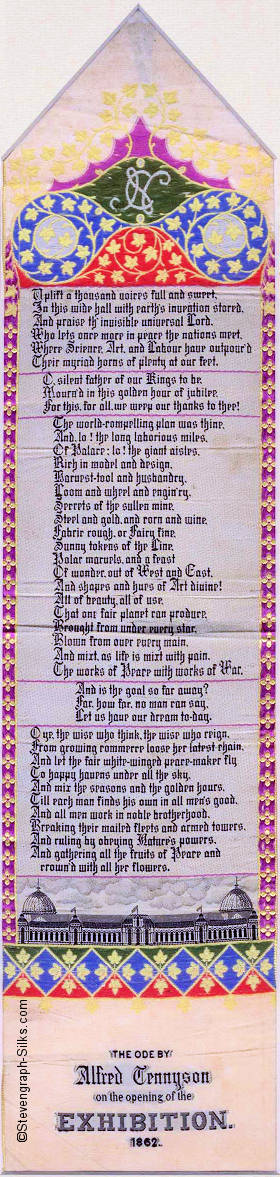 Uplift a thousand voices full and sweet,
In this wide hall with earth's invention stored,
And praise th' invisible universal Lord,
Who lets once more in peace the nations meet,
Where Science, Art, and Labour have outpour'd
Their myriad horns of plenty at our feet.
O, silent father of our Kings to be,
Mourn'd in this golden hour of jubilee,
For this, for all, we weep our thanks to thee!
The world-compelling plan was thine,
And, lo! the long laborious miles,
Of Palace; lo! the giant aisles,
Rich in model and design,
Harvest-tool and husbandry,
Loom and wheel and engin'ry,
Secrets of the sullen mine,
Steel and gold, and corn and wine,
Fabric rough, or Fairy fine,
Sunny tokens of the Line,
Polar marvels, and a feast
Of wonder, out of West and East,
And shapes and hues of Art divine!
All of beauty, all of use,
That one fair planet can produce,
Brought from under every star,
Blown from over every main,
And mixt, as life is mixt with pain,
The works of Peace with works of War.
And is the goal so far away?
Far, how far, no man can say,
Let us have our dream to-day.
O ye, the wise who think, the wise who reign,
From growing commerce loose her latest chain,
And let the fair white-winged peace-maker fly
To happy havens under all the sky,
And mix the seasons and the golden hours,
Till each man finds his own in all men's good,
And all men work in noble brotherhood,
Breaking their mailed fleets and armed towers,
And ruling by obeying Nature's powers,
And gathering all the fruits of Peace and
crown'd with all her flowers.
THE ODE BY
Alfred Tennyson
on the opening of the
EXHIBITION.
1862.
©Stevengraph-Silks.com